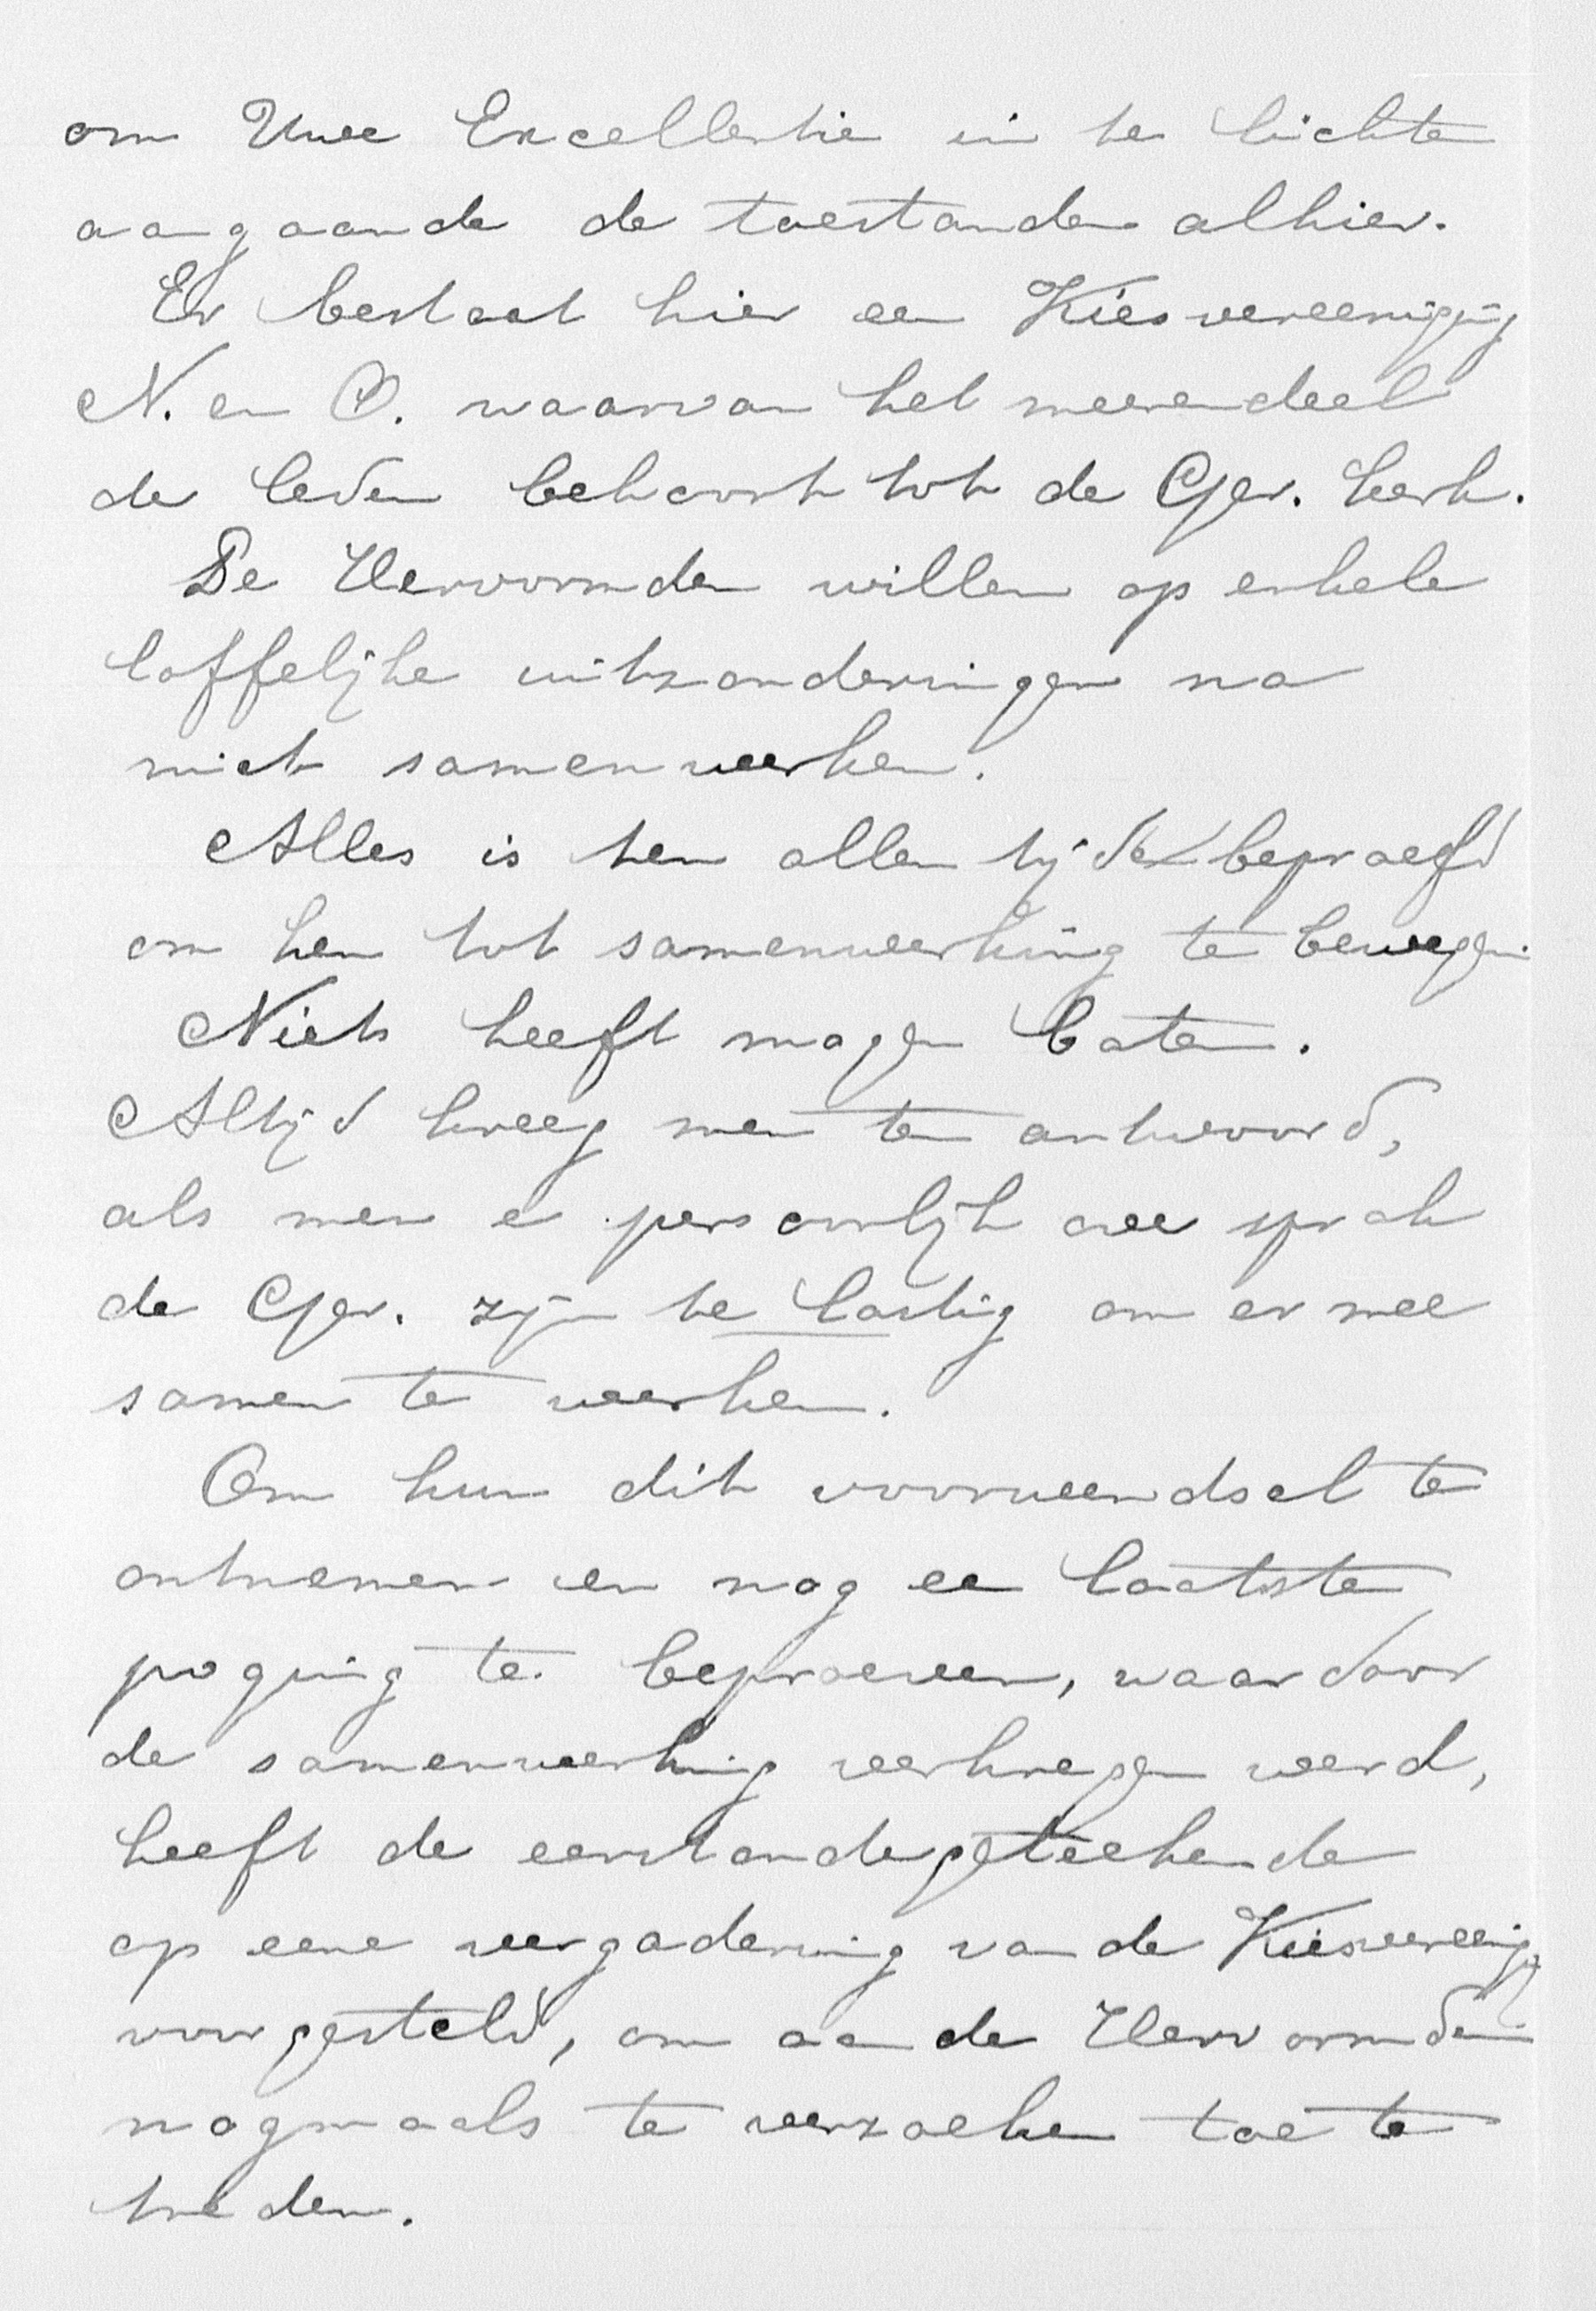 om Uwe Excellentie in te lichten
aangaande de toestanden alhier.
Er bestaat hier een Kiesvereeniging
N. en O. waarvan het meerendeel
der leden behoort tot de Ger. kerk.
De Hervormden willen op enkele
loffelijke uitzonderingen na
niet samenwerken.
Alles is ten allen tijde beproefd
om hen tot samenwerking te bewegen.
Niets heeft mogen baten.
Altijd kreeg men ten antwoord,
als men er persoonlijk over sprak
de Ger. zijn te lastig om er mee
samen te werken.
Om hun dit voorwendsel te
ontnemen en nog een laatste
poging te beproeven, waardoor
de samenwerking verkregen werd,
heeft de eerstondergeteekende
op eene vergadering van de Kiesvereenig.
voorgesteld, om aan de Hervormden
nogmaals te verzoeken toe te
treden.